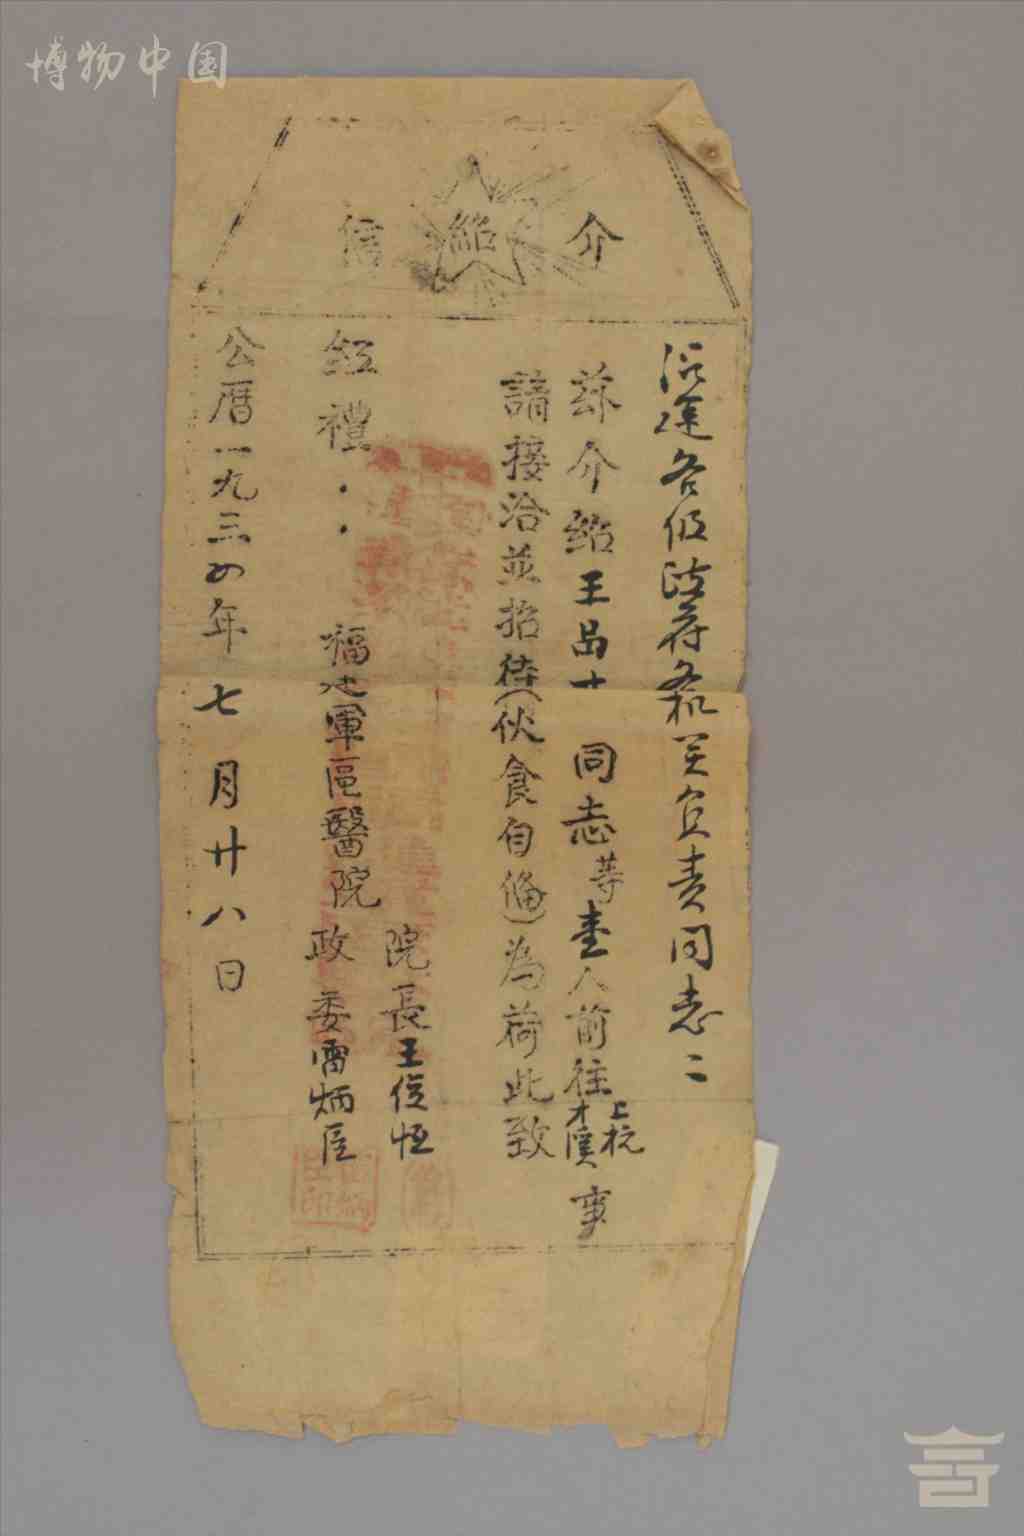 博物中国
介紹信
沿途各级政府各机关负责同志：
茲介紹王品十同志等壹人前往上杭才溪事
請接洽並招待（伙食自俻）為荷此致
紅禮：
福建軍區醫院
院長王俊恒
政委雷炳臣
公曆一九三四年七月廿八日